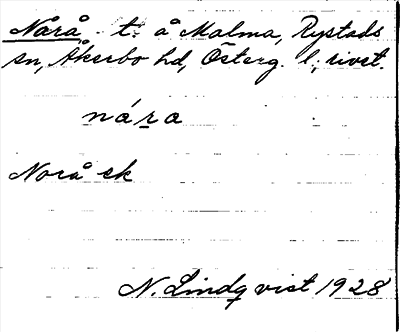 Nårå t. å Malma, Rystads
sn, Åkerbo hd, Österg. l; rivet.
nára
Norå ek
N. Lindqvist 1928